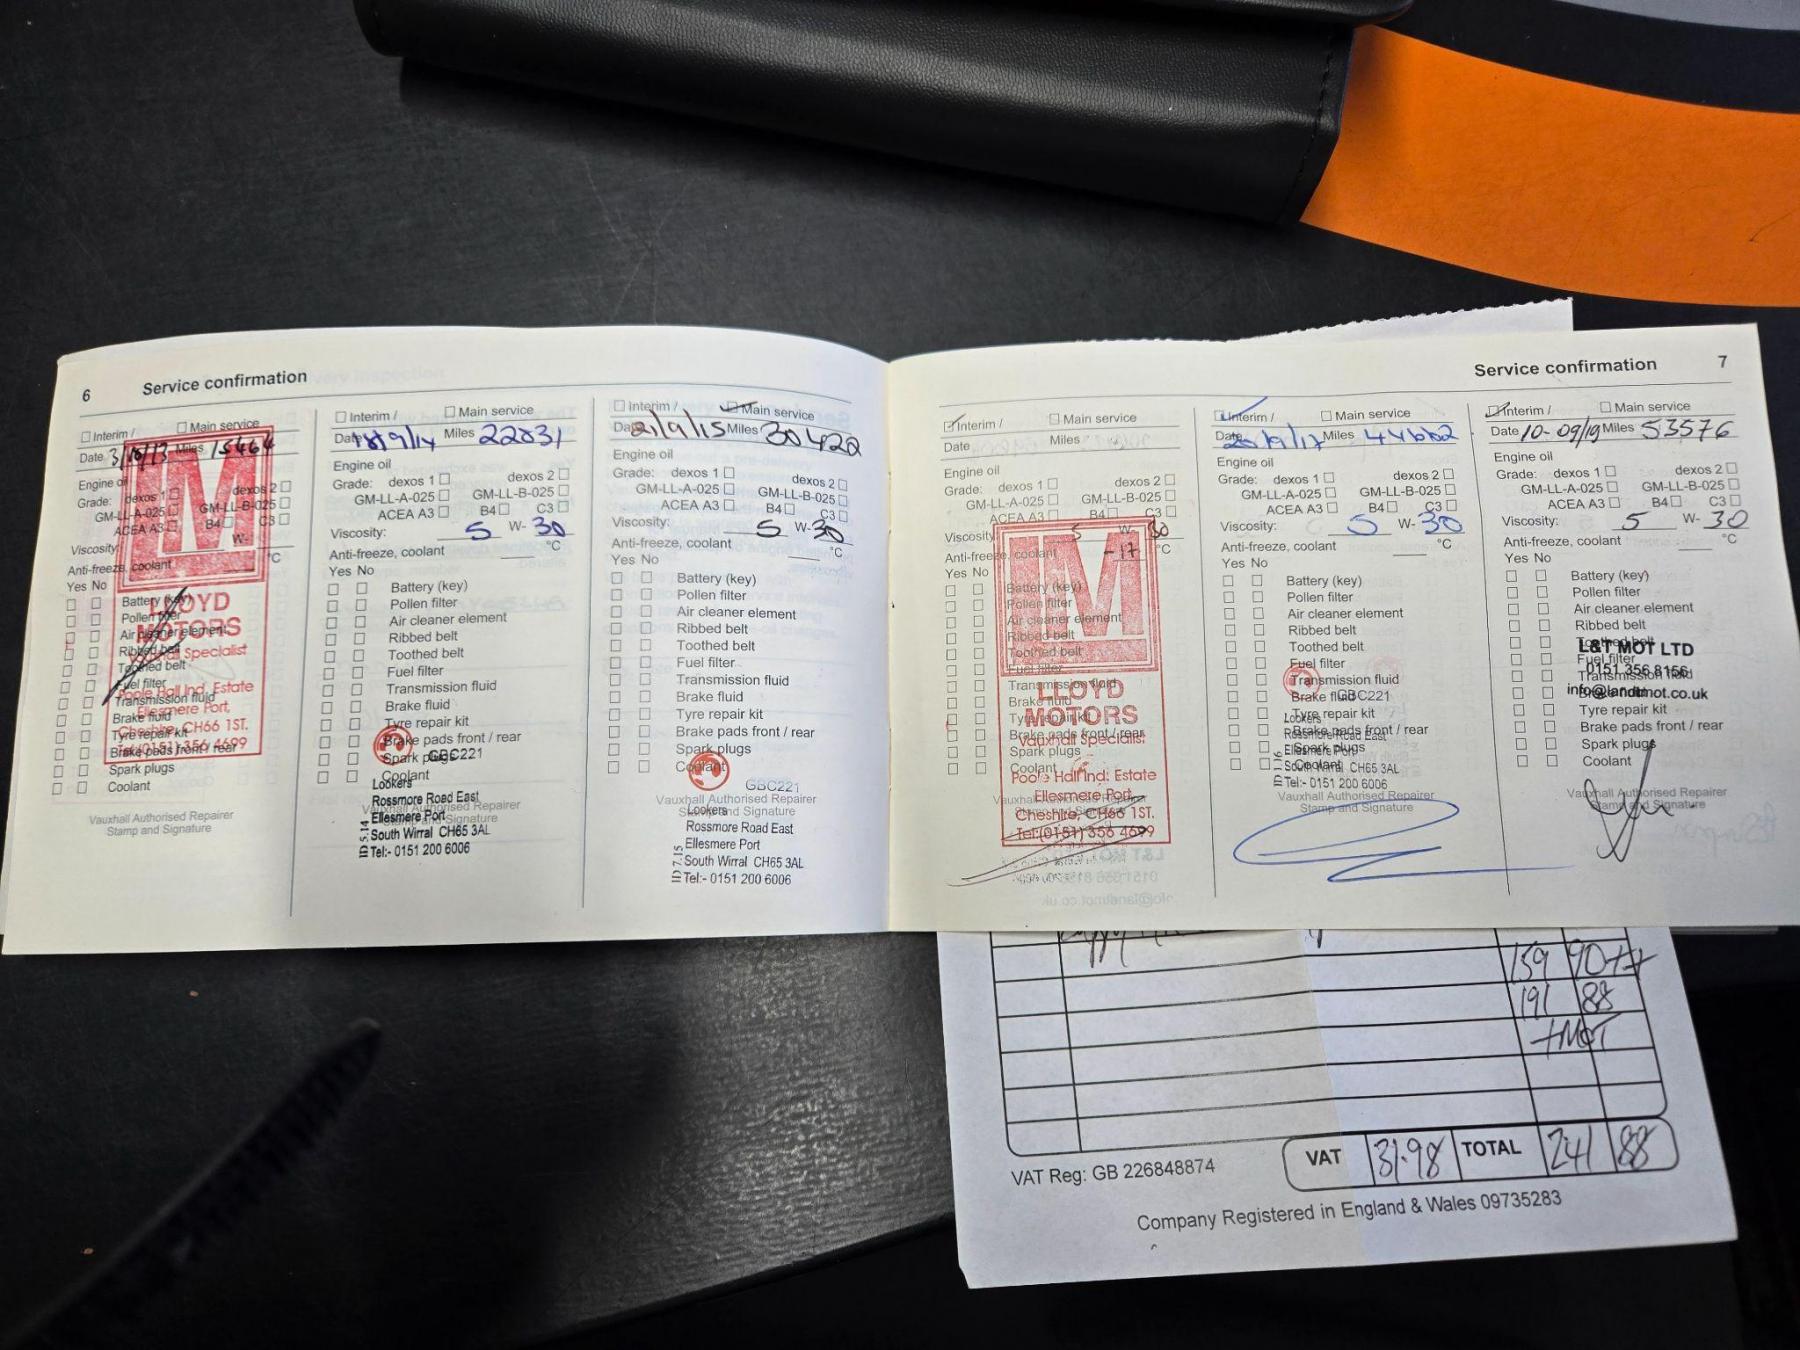 6 Service confirmation
Interim / Main service
Date 3/10/13 Miles 15464
Engine oil
Grade: dexos 1 dexos 2
GM-LL-A-025 GM-LL-B-025
ACEA A3 B4 C3
Viscosity: W-
Anti-freeze, coolant °C
Yes No
Battery (key)
Pollen filter
Air cleaner element
Ribbed belt
Toothed belt
Fuel filter
Transmission fluid
Brake fluid
Tyre repair kit
Brake pads front / rear
Spark plugs
Coolant
LM
LLOYD
MOTORS
Vauxhall Specialist
Poole Hall Ind. Estate
Ellesmere Port,
Cheshire, CH66 1ST.
Tel:(0151) 356 4699
Vauxhall Authorised Repairer
Stamp and Signature
Interim / Main service
Date 18/9/14 Miles 22031
Engine oil
Grade: dexos 1 dexos 2
GM-LL-A-025 GM-LL-B-025
ACEA A3 B4 C3
Viscosity: 5 W- 30
Anti-freeze, coolant °C
Yes No
Battery (key)
Pollen filter
Air cleaner element
Ribbed belt
Toothed belt
Fuel filter
Transmission fluid
Brake fluid
Tyre repair kit
Brake pads front / rear
Spark plugs
Coolant
GBC221
Vauxhall Authorised Repairer
Stamp and Signature
Lookers
Rossmore Road East
Ellesmere Port
South Wirral CH65 3AL
Tel:- 0151 200 6006
Interim / Main service
Date 21/9/15 Miles 30422
Engine oil
Grade: dexos 1 dexos 2
GM-LL-A-025 GM-LL-B-025
ACEA A3 B4 C3
Viscosity: 5 W- 30
Anti-freeze, coolant °C
Yes No
Battery (key)
Pollen filter
Air cleaner element
Ribbed belt
Toothed belt
Fuel filter
Transmission fluid
Brake fluid
Tyre repair kit
Brake pads front / rear
Spark plugs
Coolant
GBC221
Vauxhall Authorised Repairer
Stamp and Signature
Lookers
Rossmore Road East
Ellesmere Port
South Wirral CH65 3AL
Tel:- 0151 200 6006
Service confirmation 7
Interim / Main service
Date Miles
Engine oil
Grade: dexos 1 dexos 2
GM-LL-A-025 GM-LL-B-025
ACEA A3 B4 C3
Viscosity: 5 W- 30
Anti-freeze, coolant -17 °C
Yes No
Battery (key)
Pollen filter
Air cleaner element
Ribbed belt
Toothed belt
Fuel filter
Transmission fluid
Brake fluid
Tyre repair kit
Brake pads front / rear
Spark plugs
Coolant
LM
LLOYD
MOTORS
Vauxhall Specialist
Poole Hall Ind. Estate
Ellesmere Port,
Cheshire, CH66 1ST.
Tel:(0151) 356 4699
Vauxhall Authorised Repairer
Interim / Main service
Date Miles
Engine oil
Grade: dexos 1 dexos 2
GM-LL-A-025 GM-LL-B-025
ACEA A3 B4 C3
Viscosity: 5 W- 30
Anti-freeze, coolant °C
Yes No
Battery (key)
Pollen filter
Air cleaner element
Ribbed belt
Toothed belt
Fuel filter
Transmission fluid
Brake fluid
Tyre repair kit
Brake pads front / rear
Spark plugs
Coolant
GBC221
Lookers
Rossmore Road East
Ellesmere Port
South Wirral CH65 3AL
Tel:- 0151 200 6006
Vauxhall Authorised Repairer
Stamp and Signature
Interim / Main service
Date 10-09/19 Miles 53576
Engine oil
Grade: dexos 1 dexos 2
GM-LL-A-025 GM-LL-B-025
ACEA A3 B4 C3
Viscosity: 5 W- 30
Anti-freeze, coolant °C
Yes No
Battery (key)
Pollen filter
Air cleaner element
Ribbed belt
Toothed belt
Fuel filter
Transmission fluid
Brake fluid
Tyre repair kit
Brake pads front / rear
Spark plugs
Coolant
L&T MOT LTD
0151 356 8156
info@landtmot.co.uk
Vauxhall Authorised Repairer
Stamp and Signature
159 90
191 88
+MOT
VAT 31.98 TOTAL 241 88
VAT Reg: GB 226848874
Company Registered in England & Wales 09735283